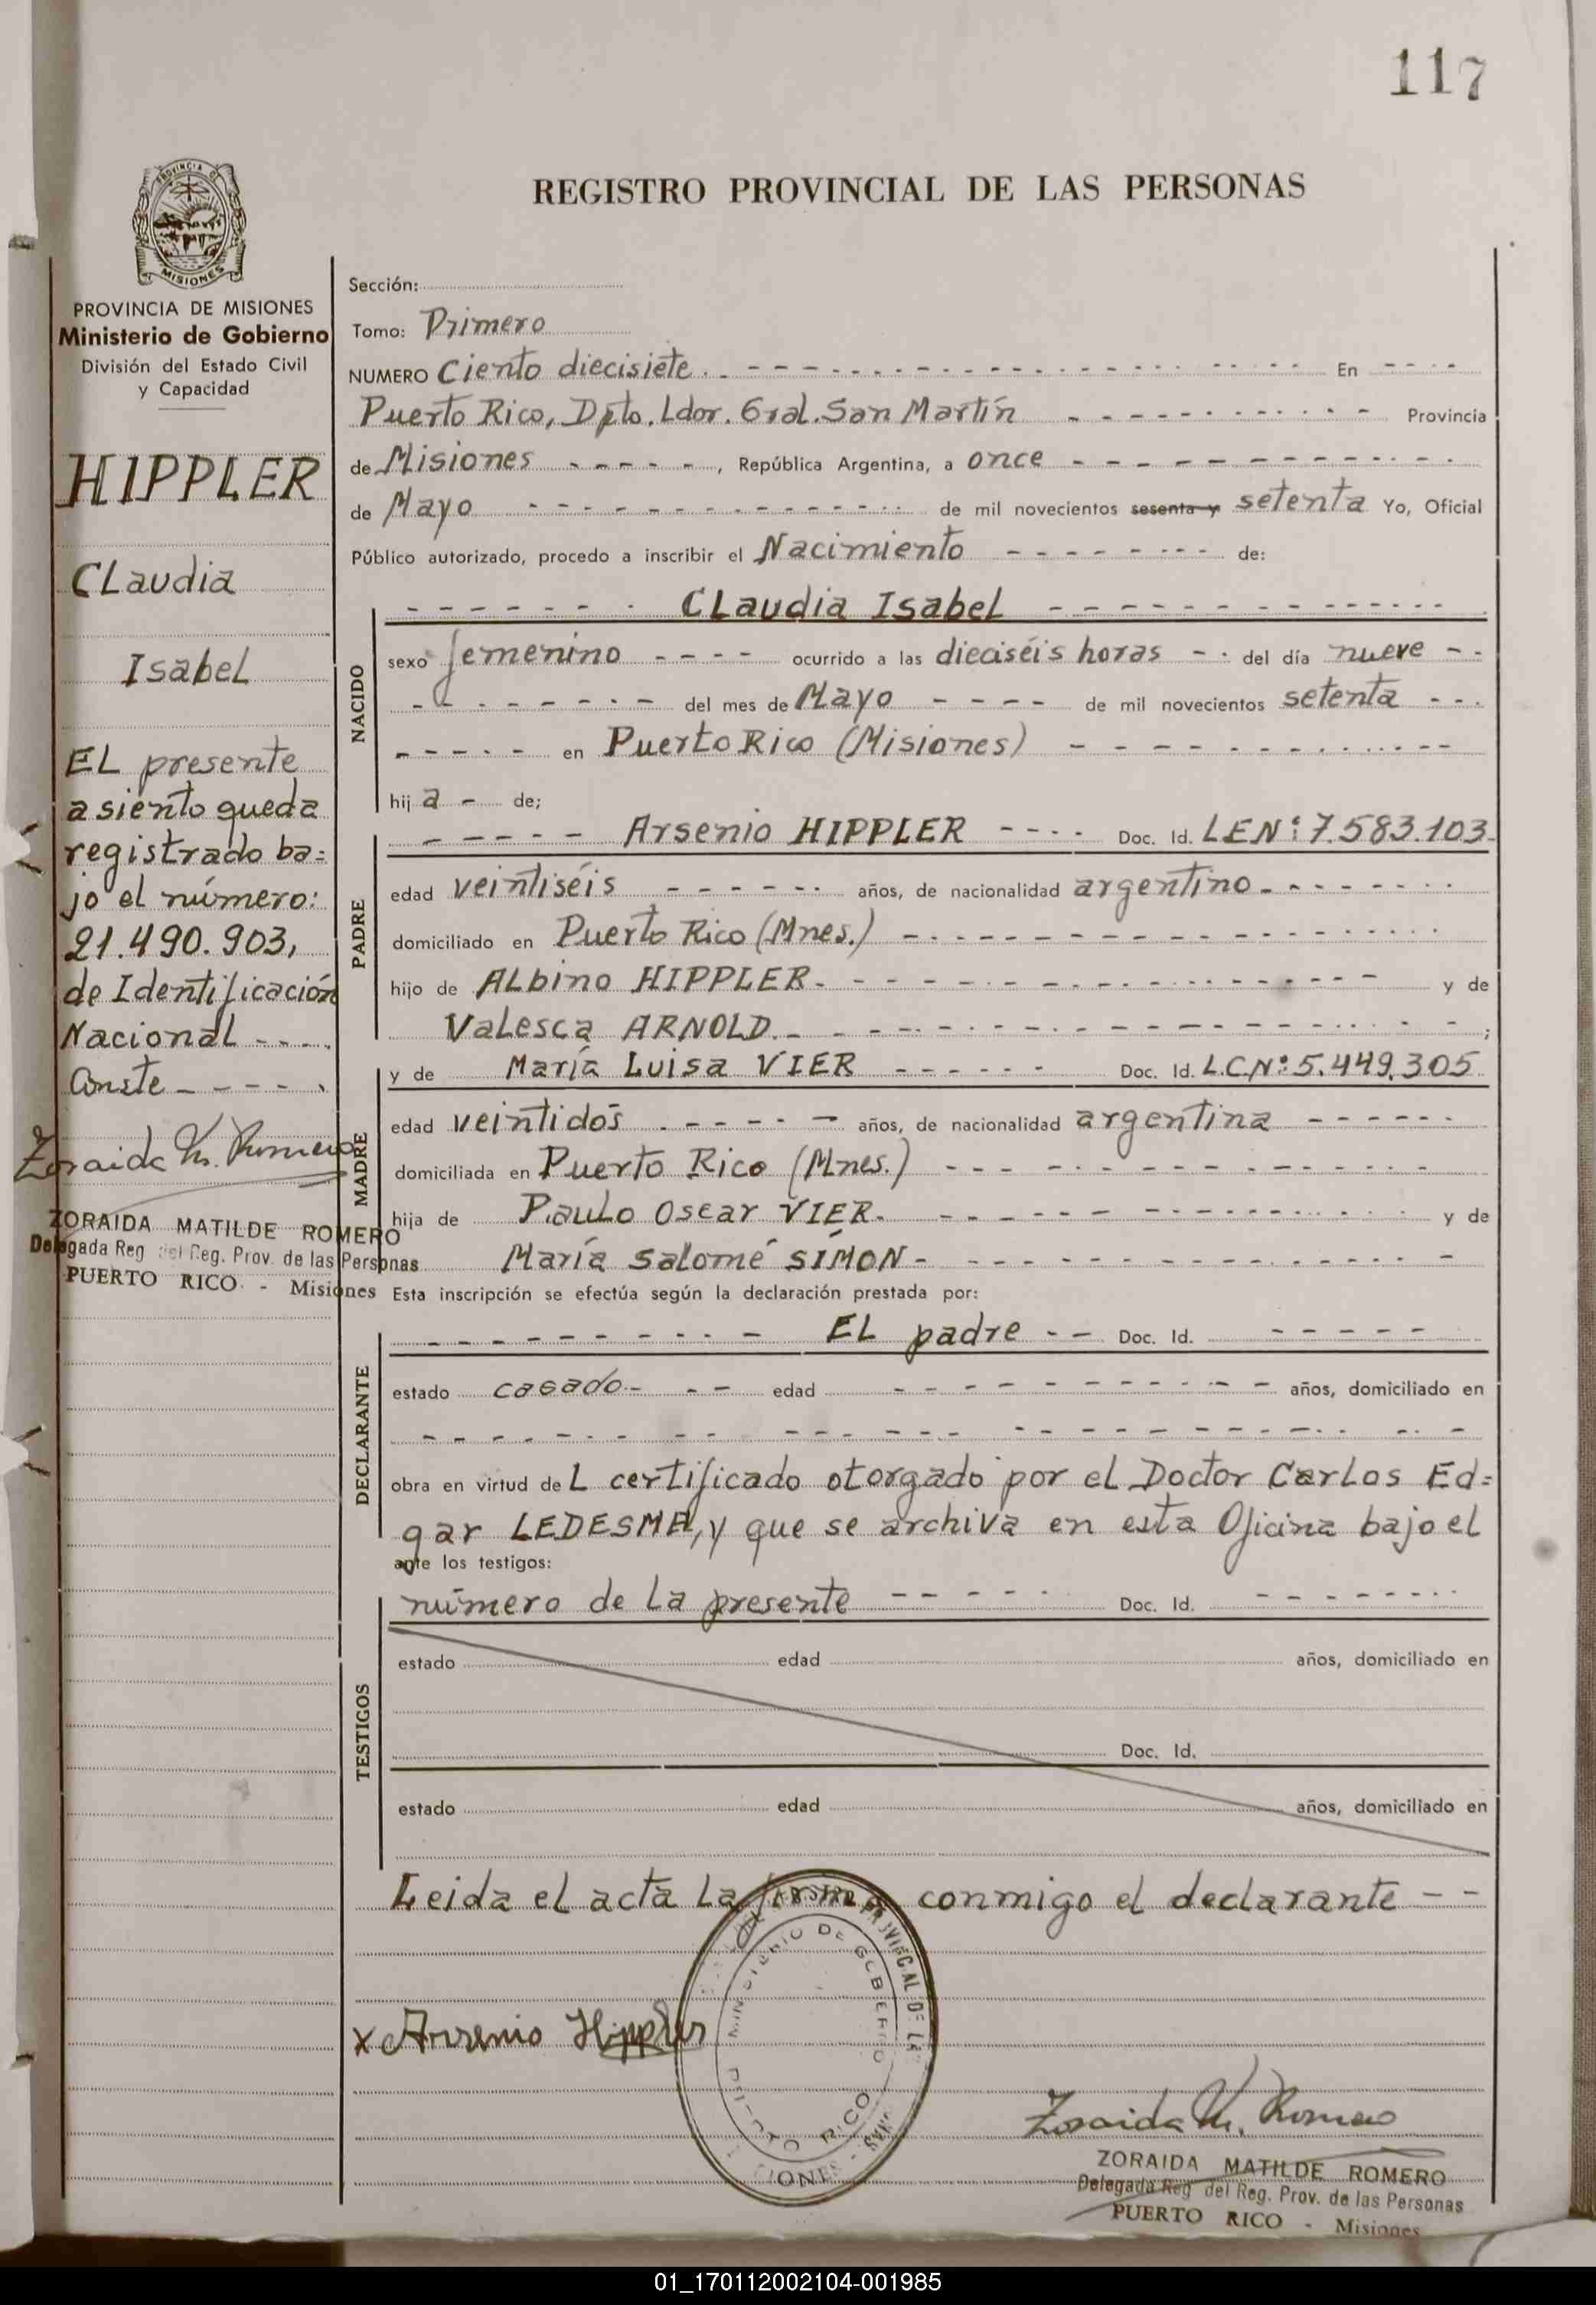 117
REGISTRO PROVINCIAL DE LAS PERSONAS
PROVINCIA DE MISIONES
Ministerio de Gobierno
División del Estado Civil
y Capacidad
HIPPLER
Claudia
Isabel
El presente
asiento queda
registrado ba=
jo el número:
21.490.903,
de Identificación
Nacional - - - .
Conste - - - - .
Zoraida M. Romero
ZORAIDA MATILDE ROMERO
Delegada Reg del Reg. Prov. de las Personas
PUERTO RICO - Misiones
Sección:
Tomo: Primero
NUMERO Ciento diecisiete. - - - En - - - -
Puerto Rico, Dpto. Ldor. Gral. San Martín - - - Provincia
de Misiones - - - - -, República Argentina, a once - - -
de Mayo - - - de mil novecientos sesenta y setenta Yo, Oficial
Público autorizado, procedo a inscribir el Nacimiento - - - de:
- - - Claudia Isabel - - -
NACIDO
sexo femenino - - - - ocurrido a las dieciséis horas - - del día nueve - -
- - - del mes de Mayo - - - - de mil novecientos setenta - - -
- - - - - en Puerto Rico (Misiones) - - -
hij a - de;
PADRE
- - - - - Arsenio HIPPLER - - - - Doc. Id. LEN°: 7.583.103-
edad veintiséis - - - años, de nacionalidad argentino - - -
domiciliado en Puerto Rico (Mnes.) - - -
hijo de Albino HIPPLER - - - y de
Valesca ARNOLD. - - - ;
MADRE
y de María Luisa VIER - - - Doc. Id. L.C.N°: 5.449.305
edad veintidós - - - años, de nacionalidad argentina - - -
domiciliada en Puerto Rico (Mnes.) - - -
hija de Paulo Oscar VIER. - - - y de
María Salomé SIMON - - -
Esta inscripción se efectúa según la declaración prestada por:
DECLARANTE
- - - El padre - - Doc. Id. - - - - -
estado casado - - - edad - - - años, domiciliado en
- - -
obra en virtud de l certificado otorgado por el Doctor Carlos Ed=
gar LEDESMA, y que se archiva en esta Oficina bajo el
ante los testigos:
número de la presente - - - Doc. Id. - - -
TESTIGOS
estado edad años, domiciliado en
Doc. Id.
estado edad años, domiciliado en
Leida el acta la firma conmigo el declarante - -
x Arsenio Hippler
MINISTERIO DE GOBIERNO
RICO
Zoraida M. Romero
ZORAIDA MATILDE ROMERO
Delegada Reg del Reg. Prov. de las Personas
PUERTO RICO - Misiones
01_170112002104-001985